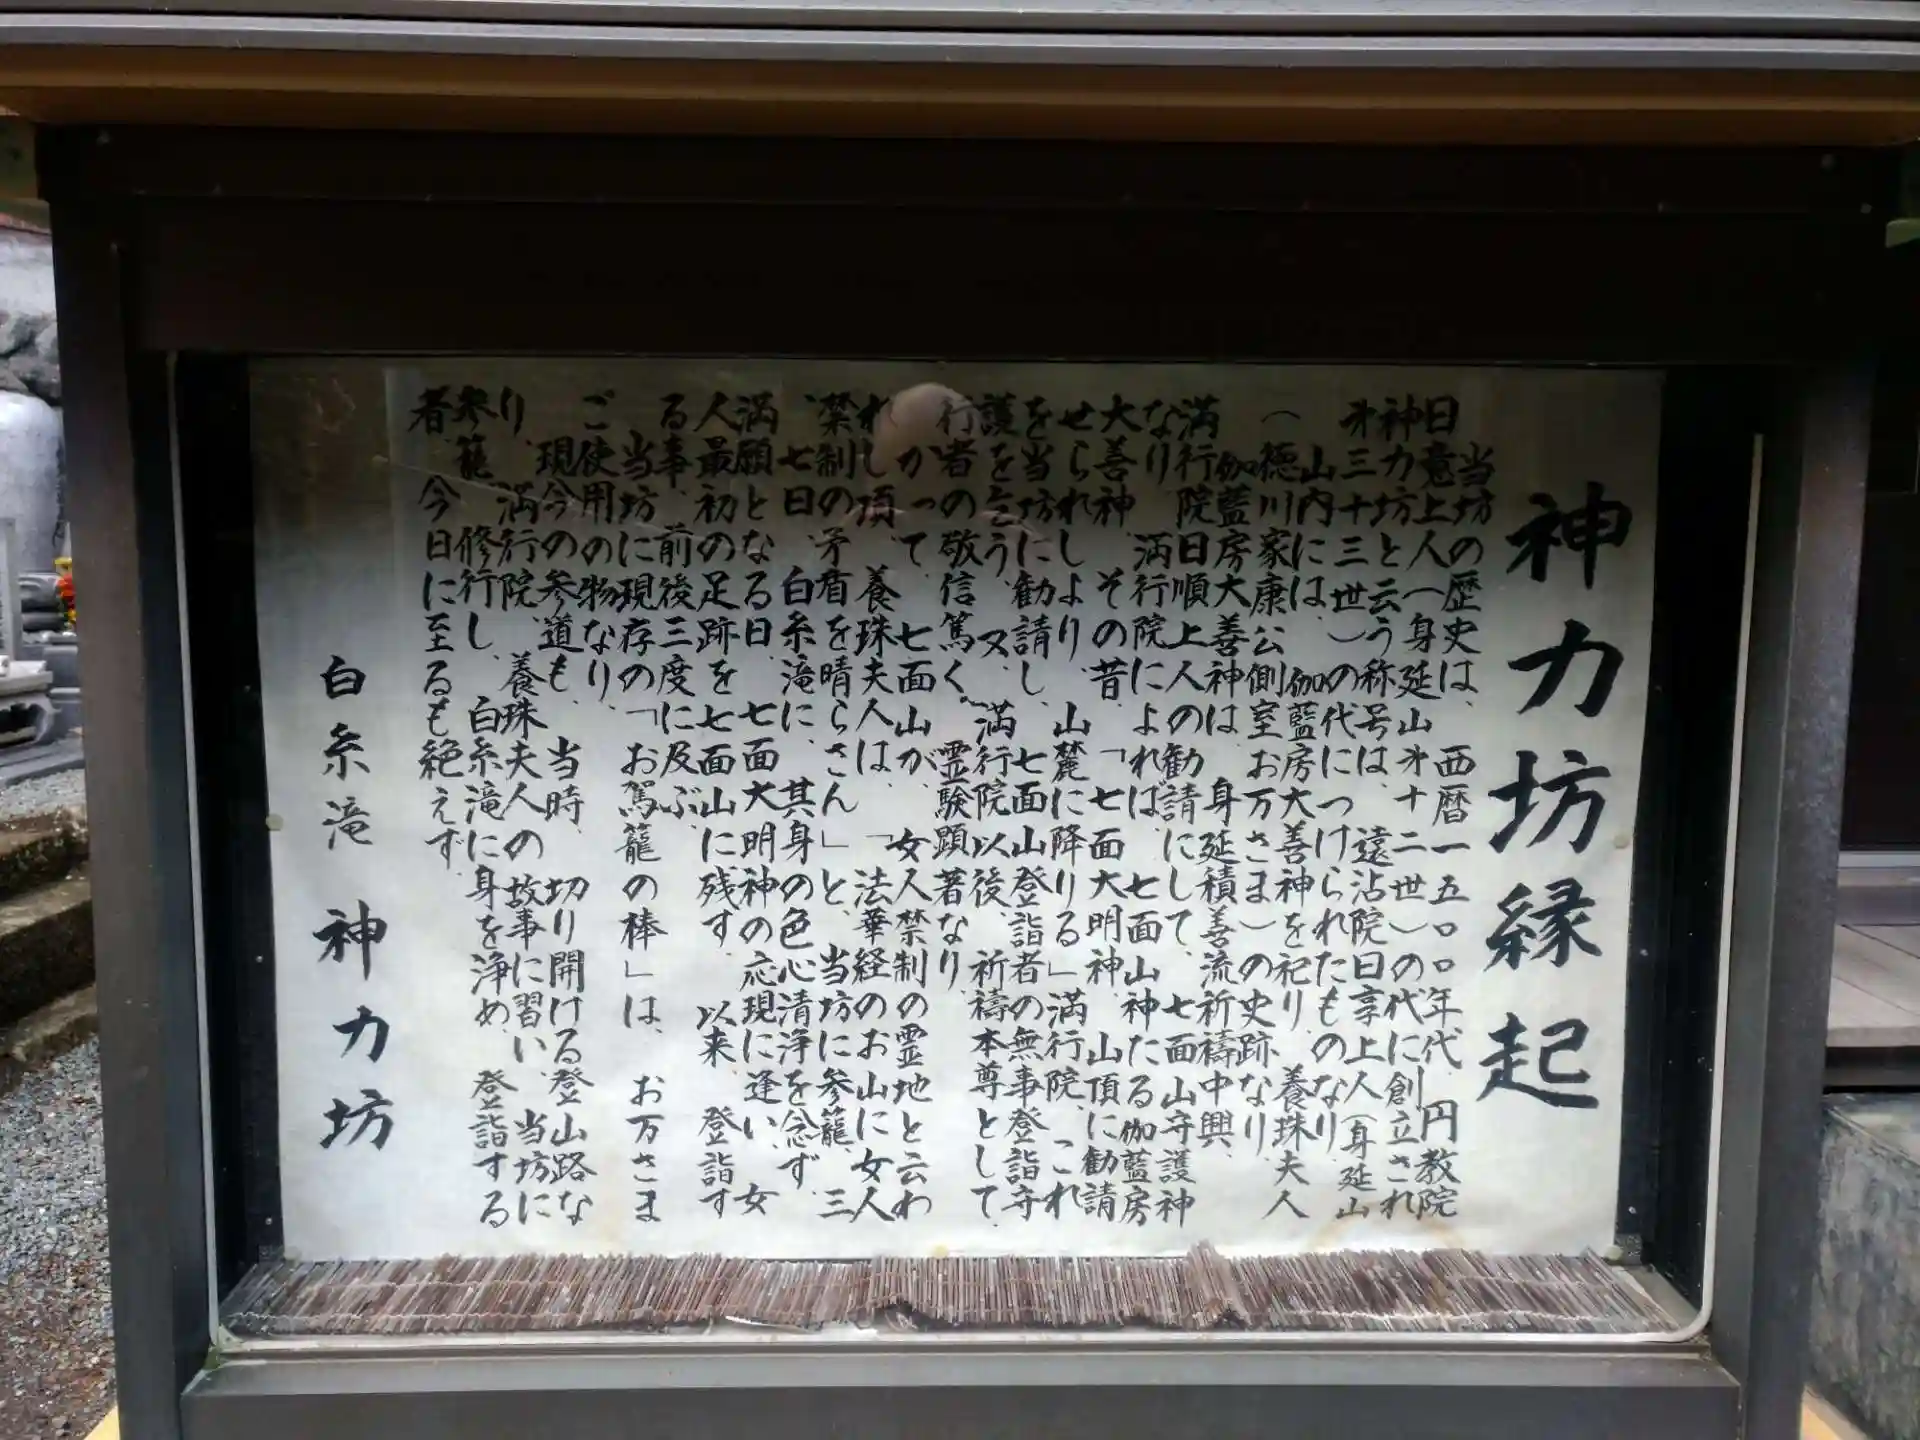 神力坊縁起
当坊の歴史は、西暦一五〇〇年代、円教院
日意上人(身延山才十二世)の代に創立され
神力坊と云う称号は、遠沾院日亨上人(身延山
才三十三世)の代につけられたものなり
山内には、伽藍房大善神を祀り、養珠夫人
(徳川家康公側室お万さま)の史跡なり
伽藍房大善神は、身延積善流祈禱中興、
満行院日順上人の勧請にして、七面山守護神
なり、満行院によれば、七面山神たる伽藍房
大善神 その昔「七面大明神、山頂に勧請
せられしより 山麓に降りる」満行院、これ
を当坊に勧請し、七面山登詣者の無事登詣守
護を乞う、又、満行院以後、祈禱本尊として
行者の敬信篤く、霊験顕著なり
かつて、七面山が、女人禁制の霊地と云わ
れし頃、養珠夫人は、「法華経のお山に女人
禁制の矛盾を晴らさん」と、当坊に参籠、三
、七日、白糸滝に、其身の色心清浄を念ず、
満願となる日、七面大明神の応現に逢い、女
人最初の足跡を七面山に残す。以来、登詣す
る事、前後三度に及ぶ
当坊に現存の「お駕籠の棒」は、お万さま
ご使用の物なり
現今の参道も、当時、切り開ける登山路な
り、満行院、養珠夫人の故事に習い、当坊に
参籠、修行し、白糸滝に身を浄め、登詣する
者、今日に至るも絶えず
白糸滝 神力坊